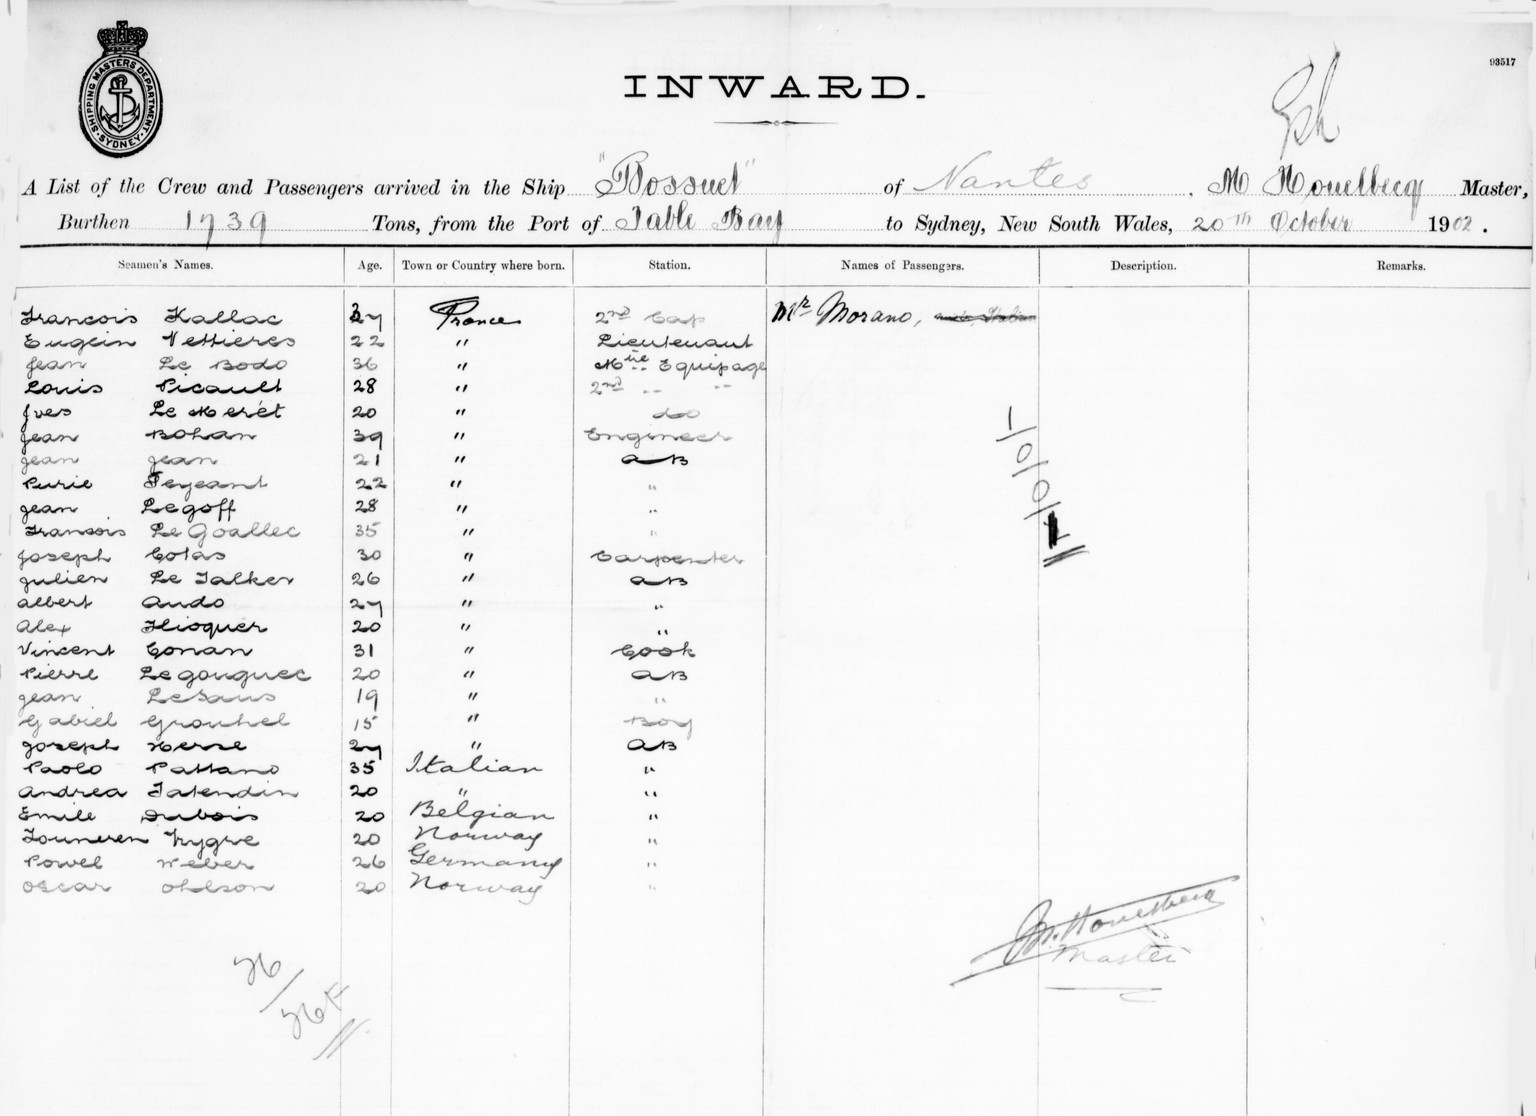 SHIPPING MASTERS DEPARTMENT
SYDNEY
93517
INWARD.
A List of the Crew and Passengers arrived in the Ship "Bossuet" of Nantes, M Houelbecq Master,
Burthen 1739 Tons, from the Port of Table Bay to Sydney, New South Wales, 20th October 1902.
Seamen's Names. Age. Town or Country where born. Station. Names of Passengers. Description. Remarks.
Francois Kallac 27 France 2nd Cap Mr Morano,
Eugein Vettieres 22 " Lieutenant
Jean Le Bodo 36 " Mtre Equipage
Louis Picault 28 " 2nd " "
Yves Le Merét 20 " do
Jean Bohan 39 " Engineer
Jean Jean 21 " AB
Purie Feyeant 22 " "
Jean Legoff 28 " "
Francois Le Goallec 35 " "
Joseph Colas 30 " Carpenter
Julien Le Talker 26 " AB
Albert Ando 27 " "
Alex 20 " "
Vincent Conan 31 " Cook
Pierre Legouguec 20 " AB
Jean Lesaus 19 " "
Gabiel Grouhel 15 " Boy
Joseph Herve 27 " AB
Paolo Pattano 35 Italian "
Andrea Tatendin 20 " "
Emile Dubois 20 Belgian "
Trygve 20 Norway "
Powel Weber 26 Germany "
Oscar Ohlson 20 Norway "
1/0/0/1
M. Houelbecq
Master
26/26F